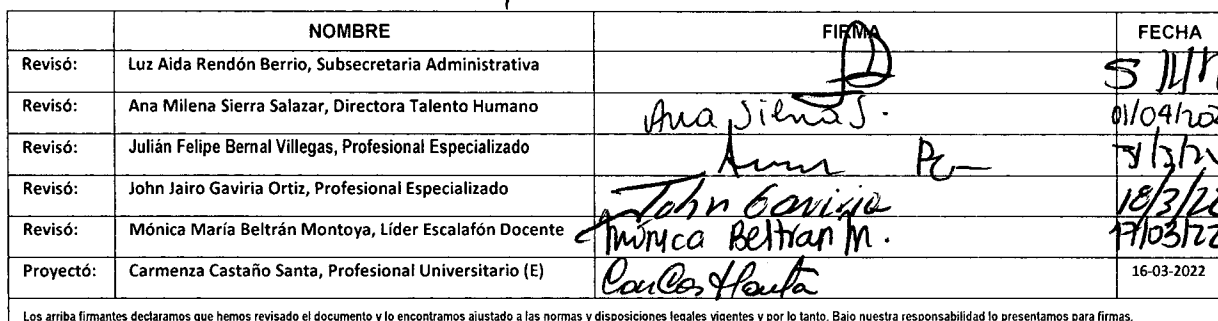 NOMBRE FIRMA FECHA
Revisó: Luz Aida Rendón Berrio, Subsecretaria Administrativa
Revisó: Ana Milena Sierra Salazar, Directora Talento Humano Ana Sierra S. 01/04/202
Revisó: Julián Felipe Bernal Villegas, Profesional Especializado
Revisó: John Jairo Gaviria Ortiz, Profesional Especializado John Gaviria 18/3/20
Revisó: Mónica María Beltrán Montoya, Líder Escalafón Docente Mónica Beltran M. 17/03/22
Proyectó: Carmenza Castaño Santa, Profesional Universitario (E) 16-03-2022
Los arriba firmantes declaramos que hemos revisado el documento y lo encontramos ajustado a las normas y disposiciones legales vigentes y por lo tanto. Bajo nuestra responsabilidad lo presentamos para firmas.